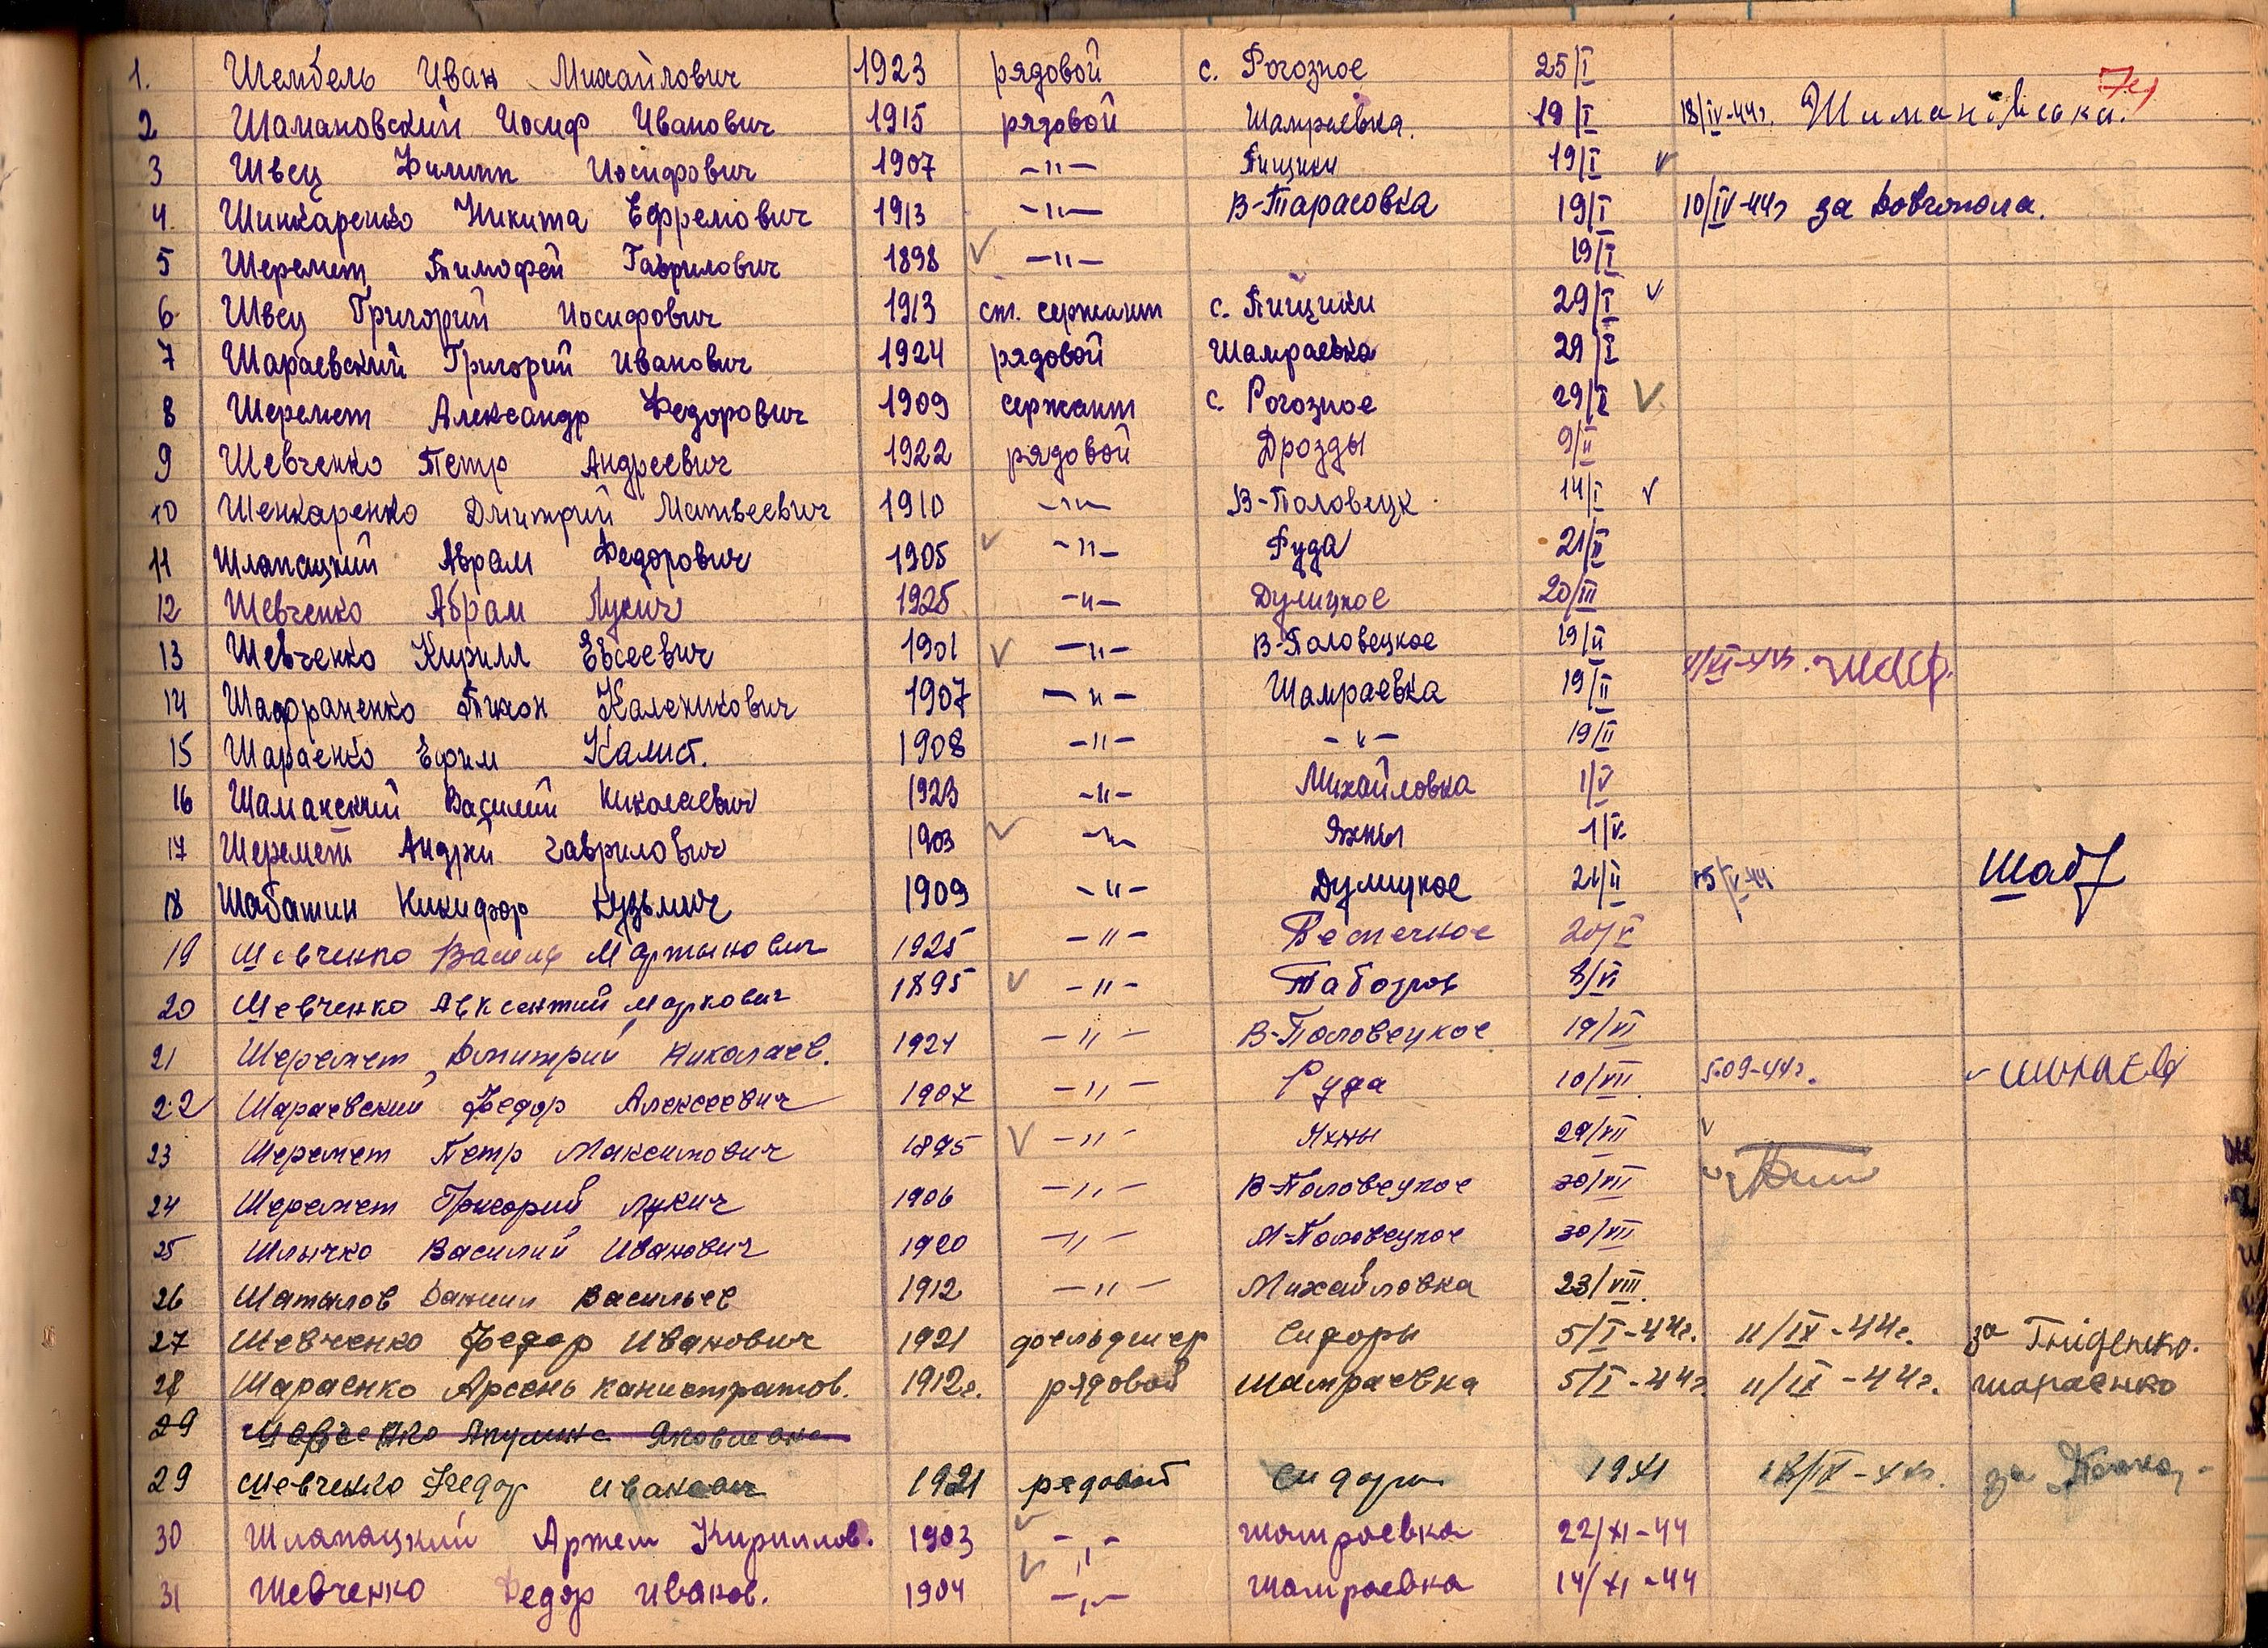 7
1. Шембель Иван Михайлович 1923 рядовой с. Рогозное 25/I
2 Шамановский Иосиф Иванович 1915 рядовой Шамраевка. 19/I 18/IV-44г.
3 Швец Филипп Иосифович 1907 —"— Пищики 19/I v
4. Шинкаренко Никита Ефремович 1913 —"— В-Тарасовка 19/I 10/IV-44г за Довгопола.
5 Шеремет Тимофей Гаврилович 1898 v —"— 19/I
6 Швец Григорий Иосифович 1913 ст. сержант с. Пищики 29/I v
7 Шараевский Григорий Иванович 1924 рядовой Шамраевка 29/I
8 Шеремет Александр Федорович 1909 сержант с. Рогозное 29/I v
9 Шевченко Петр Андреевич 1922 рядовой Дрозды 9/II
10 Шенкаренко Дмитрий Матвеевич 1910 —"— В-Половецк. 14/I v
11 Шлапацкий Абрам Федорович 1905 v —"— Руда 21/II
12 Шевченко Абрам Лукич 1925 —"— Дулицкое 20/III
13 Шевченко Кирилл Евсеевич 1901 v —"— В-Половецкое 19/II
14 Шафраненко Тихон Каленикович 1907 —"— Шамраевка 19/II
15 Шараенко Ефим Калист. 1908 —"— —"— 19/II
16 Шаманский Василий Николаевич 1923 —"— Михайловка 1/V
17 Шеремет Андрей Гаврилович 1903 v —"— Яхны 1/V
18 Шабатин Никифор Кузьмич 1909 —"— Дулицкое 21/II 15/V-44 Шаб
19 Шевченко Василь Мартынович 1925 —"— Безпечное 20/V
20 Шевченко Авксентий Маркович 1895 v —"— Таборов 8/VI
21 Шеремет Дмитрий Николаев. 1921 —"— В-Половецкое 19/VI
22 Шараевский Федор Алексеевич 1907 —"— Руда 10/VII 5.09-44г.
23 Шеремет Петр Максимович 1895 v —"— Яхны 29/VII v
24 Шеремет Григорий Лукич 1906 —"— В-Половецкое 30/VII
25 Шлычко Василий Иванович 1920 —"— М-Половецкое 30/VII
26 Шатылов Даниил Васильев 1912 —"— Михайловка 23/VIII
27 Шевченко Федор Иванович 1921 фельдшер Сидоры 5/I-44г. 11/IX-44г. за Гніденко.
28 Шараенко Арсень Канистратов. 1912г. рядовой Шамраевка 5/I-44г 11/IX-44г. Шараенко
29 Шевченко Акулина Яковлевна
29 Шевченко Федор Иванович 1921 рядовой Сидоры 1941 за
30 Шлапацкий Артем Кириллов. 1903 v —"— Шамраевка 22/XI-44
31 Шевченко Федор Иванов. 1904 v —"— Шамраевка 14/XI-44